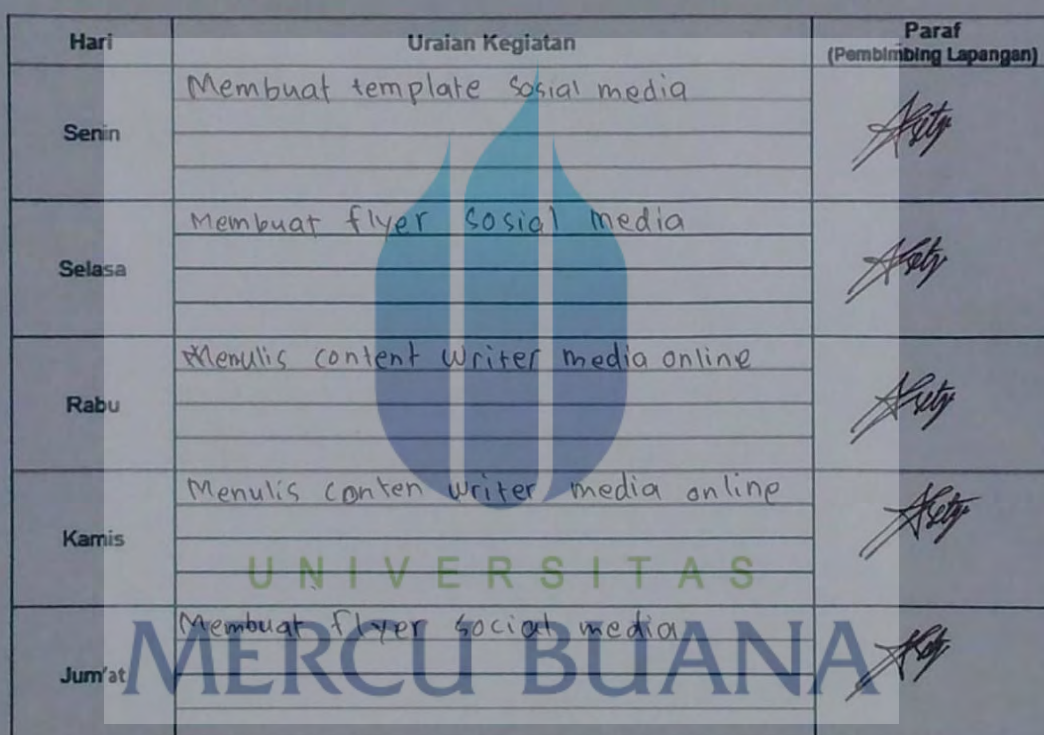 Hari Uraian Kegiatan Paraf
(Pembimbing Lapangan)
Senin
Membuat template sosial media
Selasa
Membuat flyer sosial media
Rabu
Menulis content writer media online
Kamis
Menulis conten writer media online
Jum'at
Membuat flyer social media
UNIVERSITAS
MERCU BUANA